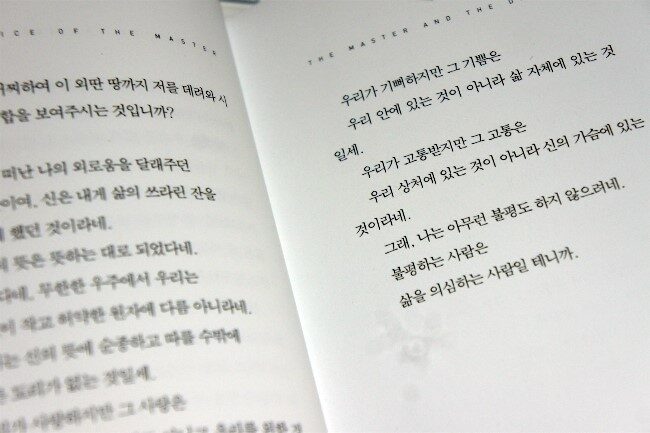 ICE OF THE MASTER
어찌하여 이 외딴 땅까지 저를 데려와 시
함을 보여주시는 것입니까?
떠난 나의 외로움을 달래주던
이여, 신은 내게 삶의 쓰라린 잔을
했던 것이라네.
뜻은 뜻하는 대로 되었다네.
다네. 무한한 우주에서 우리는
이 작고 허약한 원자에 다름 아니라네.
는 신의 뜻에 순종하고 따를 수밖에
도리가 없는 것일세.
사랑하지만 그 사랑은
THE MASTER AND THE D
우리가 기뻐하지만 그 기쁨은
우리 안에 있는 것이 아니라 삶 자체에 있는 것
일세.
우리가 고통받지만 그 고통은
우리 상처에 있는 것이 아니라 신의 가슴에 있는
것이라네.
그래, 나는 아무런 불평도 하지 않으려네.
불평하는 사람은
삶을 의심하는 사람일 테니까.